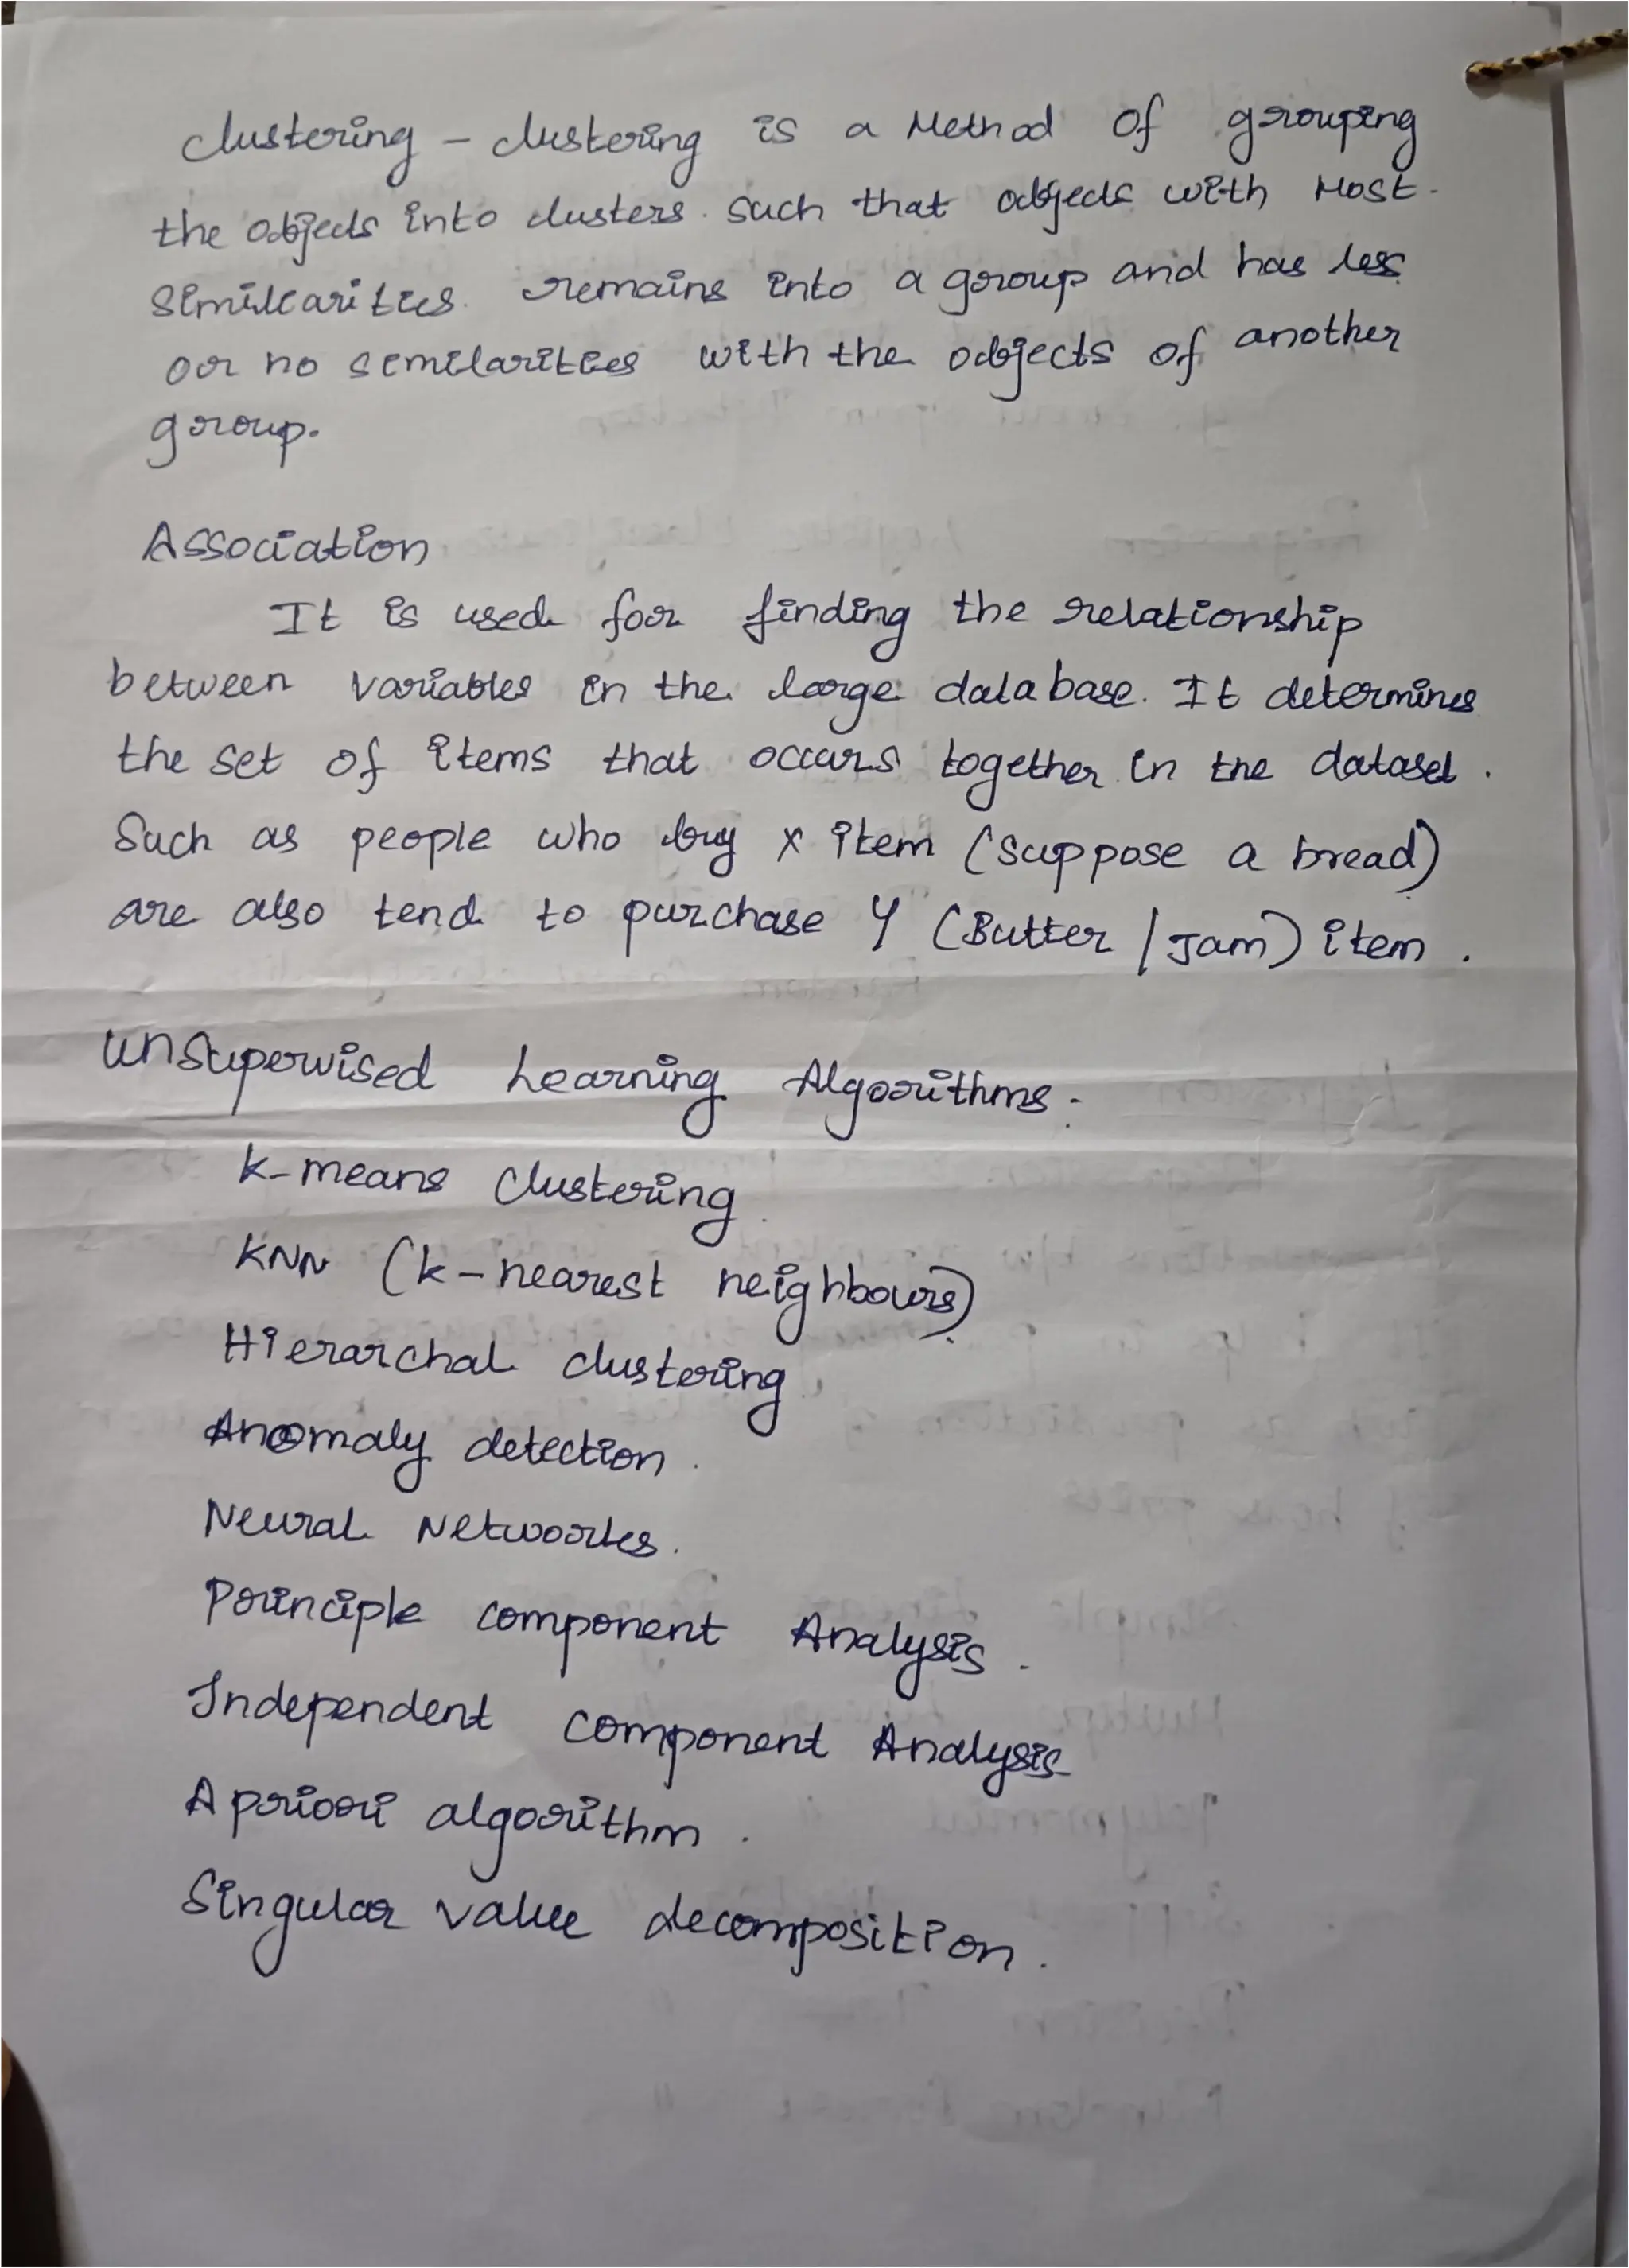 Clustering - clustering is a Method of grouping
the objects into clusters such that objects with Most
similarities remains into a group and has less
or no similarities with the objects of another
group.
Association
It is used for finding the relationship
between variables in the large database. It determines
the set of items that occurs together in the dataset.
Such as people who buy x item (suppose a bread)
are also tend to purchase Y (Butter / Jam) item.
Unsupervised Learning Algorithms:
k-means clustering
KNN (k-nearest neighbours)
Hierarchal clustering
Anomaly detection.
Neural Networks.
Principle component Analysis.
Independent component Analysis
Apriori algorithm.
Singular value decomposition.